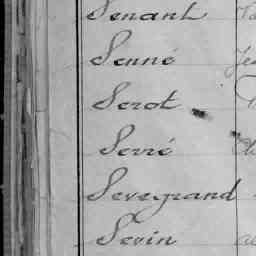 Senant
Senné
Serot
Serré
Sevegrand
Sevin